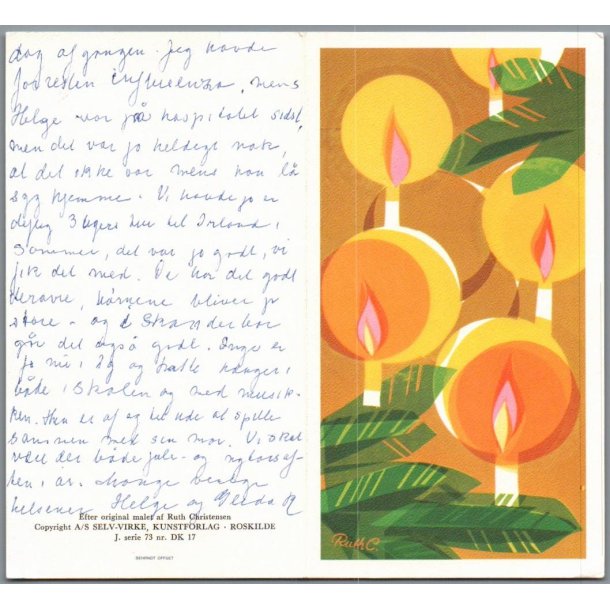 dag af gangen. Jeg havde
forresten influenza, mens
Helge var på hospitalet sidst,
men det var jo heldigt nok,
at det ikke var mens han lå
syg hjemme. Vi havde jo en
dejlig 3 ugers tur til Irland i
sommer, det var jo godt, vi
fik det med. De har det godt
derovre, børnene bliver jo
store - og i Skanderbor
går det også godt. Inge er
jo nu i og hænger i
både i skolen og med musik-
ken. Hun er af og til ude at spille
sammen med sin mor. Vi skal
være der både jule- og nytårsaf-
ten i år. Mange
hilsener Helge og
Efter original malet af Ruth Christensen
Copyright A/S SELV-VIRKE, KUNSTFORLAG · ROSKILDE
J. serie 73 nr. DK 17
BEHRNDT OFFSET
Ruth C.